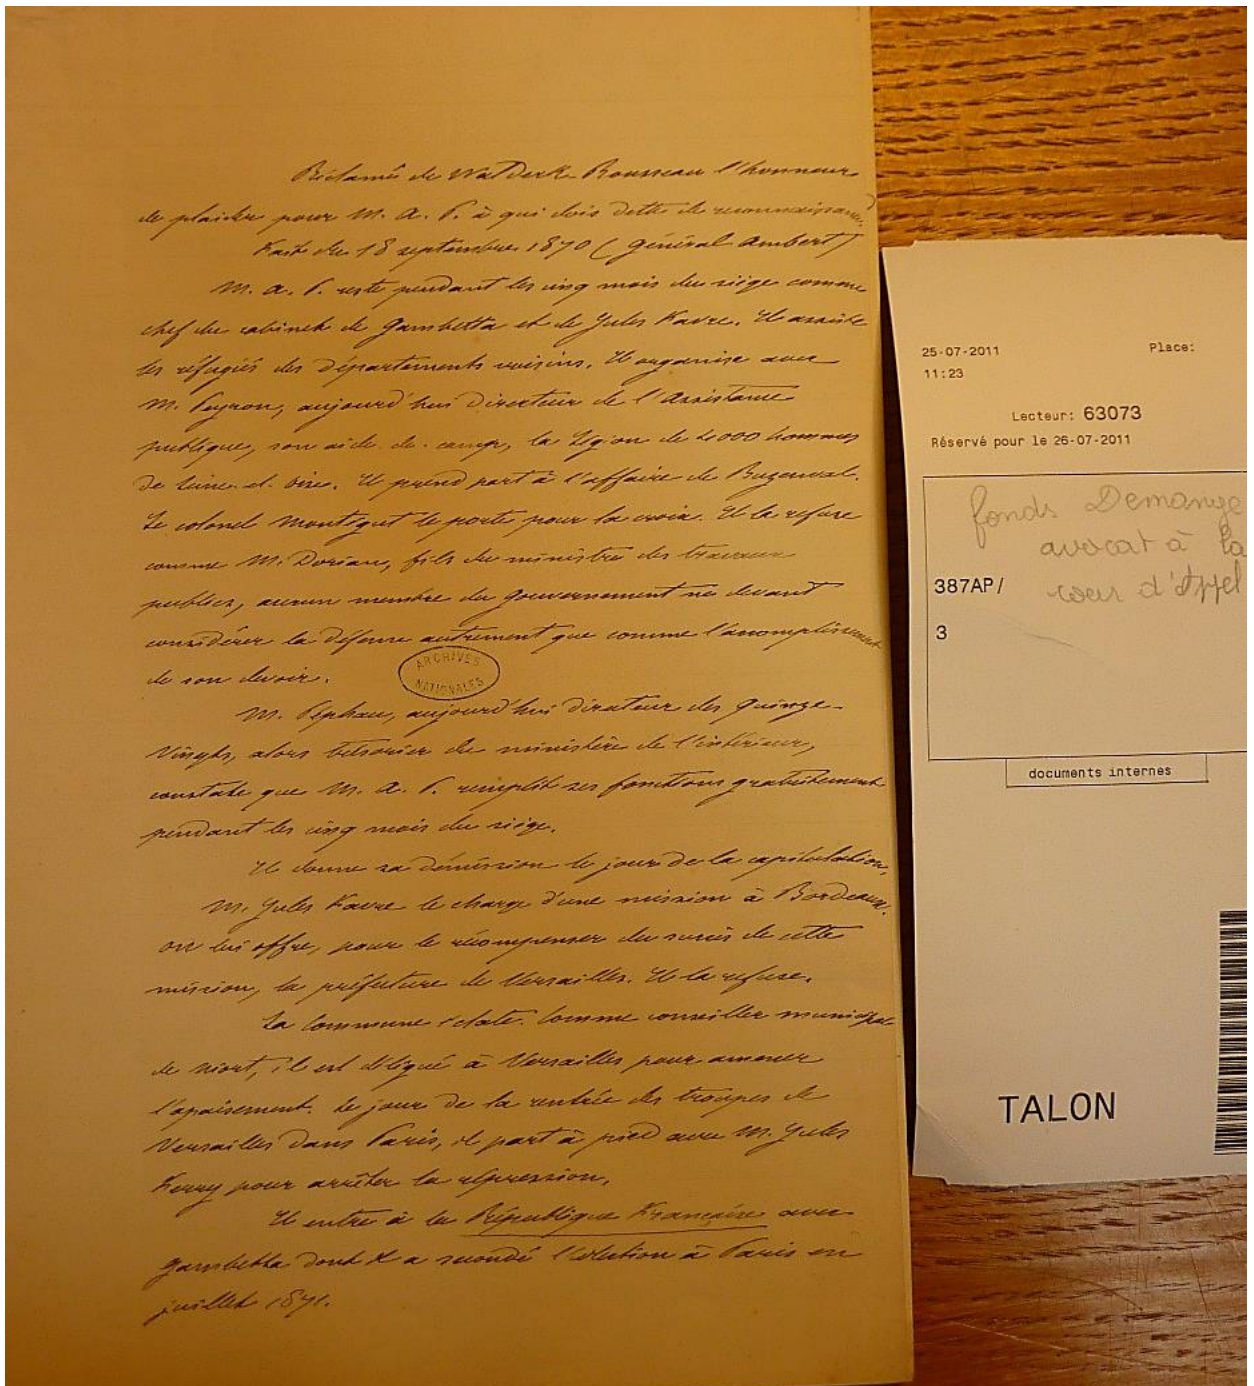 Réclamé de Waldeck-Rousseau l'honneur
de plaider pour M. A. P. à qui dois dette de reconnaissance.
Fait du 18 septembre 1870 (Général Ambert)
M. A. P. reste pendant les cinq mois du siège comme
chef du cabinet de Gambetta et de Jules Favre. Il assiste
les réfugiés des départements voisins. Il organise avec
M. Peyron, aujourd'hui Directeur de l'Assistance
publique, son aide-de-camp, la Légion de 2000 hommes
de Seine-et-Oise. Il prend part à l'affaire de Buzenval.
Le colonel Montégut le porte pour la croix. Il la refuse
comme M. Dorian, fils du ministre des travaux
publics, aucun membre du gouvernement ne devant
considérer la défense autrement que comme l'accomplissement
de son devoir.
ARCHIVES
NATIONALES
M. Péphau, aujourd'hui directeur des Quinze-
Vingts, alors trésorier du ministère de l'intérieur,
constate que M. A. P. remplit ses fonctions gratuitement
pendant les cinq mois du siège.
Il donne sa démission le jour de la capitulation.
M. Jules Favre le charge d'une mission à Bordeaux.
On lui offre, pour le récompenser du succès de cette
mission, la préfecture de Versailles. Il la refuse.
La Commune éclate. Comme conseiller municipal
de Niort, il est délégué à Versailles pour amener
l'apaisement. Le jour de la rentrée des troupes de
Versailles dans Paris, il part à pied avec M. Jules
Ferry pour arrêter la répression.
Il entre à la République Française avec
Gambetta dont il a secondé l'élection à Paris en
juillet 1871.
25-07-2011 Place:
11:23
Lecteur: 63073
Réservé pour le 26-07-2011
fonds Demange
avocat à la
387AP/ cour d'Appel
3
documents internes
TALON